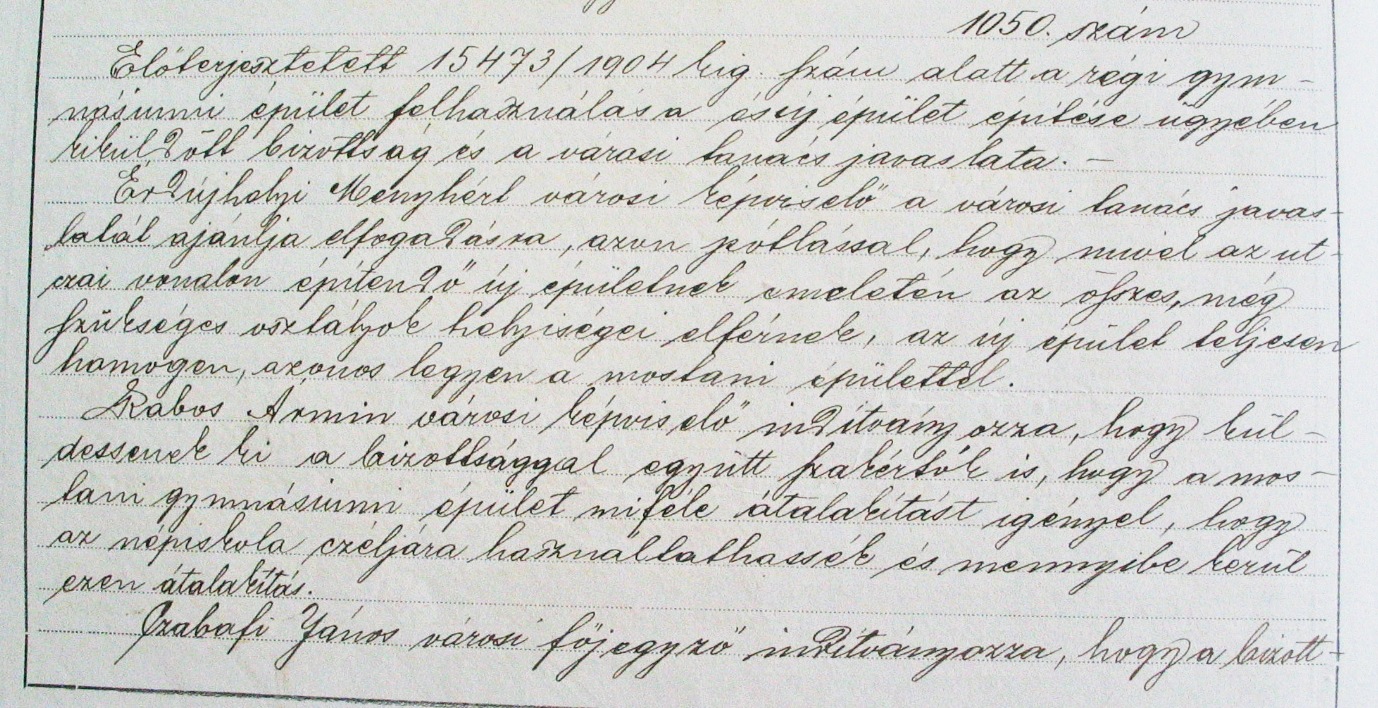 1050. szám
Előterjesztetett 15473/1904 kig. szám alatt a régi gym-
násiumi épület felhasználása és új épület építése ügyében
kiküldött bizottság és a városi tanács javaslata. –
Érdújhelyi Menyhért városi képviselő a városi tanács javas-
latát ajánlja elfogadásra, azon pótlással, hogy mivel az ut-
czai vonalon építendő új épületnek emeletén az összes, még
szükséges osztályok helyiségei elférnek, az új épület teljesen
hamogen, azonos legyen a mostani épülettel.
Rabos Ármin városi képviselő indítványozza, hogy kül-
dessenek ki a bizottsággal együtt szakértők is, hogy a mos-
tani gymnásiumi épület miféle átalakítást igényel, hogy
az népiskola czéljára használtathassék és mennyibe kerül
ezen átalakítás.
Szabafi János városi főjegyző indítványozza, hogy a bizott-